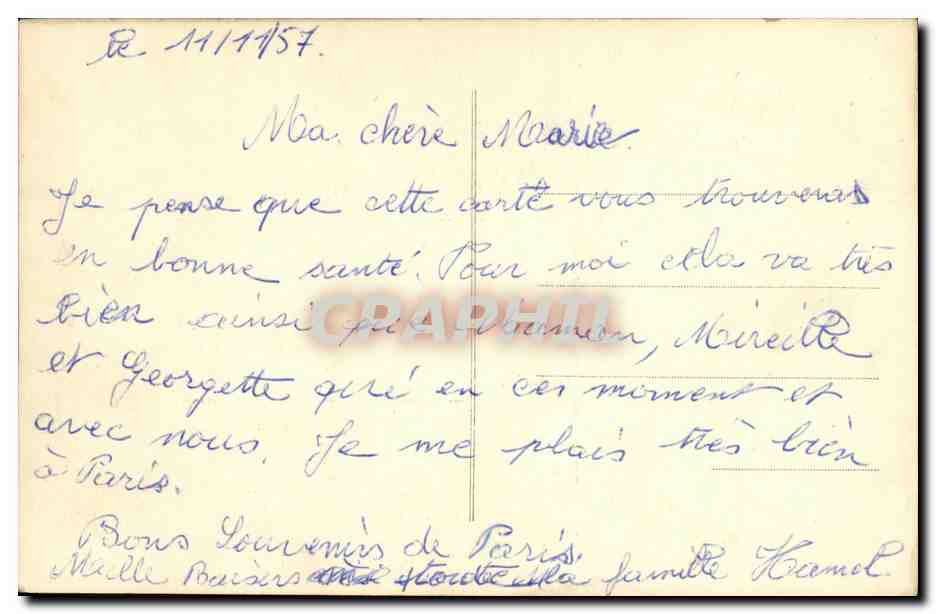 Le 11/11/57.
Ma chère Marie.
Je pense que cette carte vous trouvera
en bonne santé. Pour moi cela va très
bien ainsi que Maman, Mireille
CPAPHIL
et Georgette qui en ces moment et
avec nous. Je me plais très bien
à Paris.
Bons Souvenirs de Paris.
Mille Baisers toute la famille Hamel.